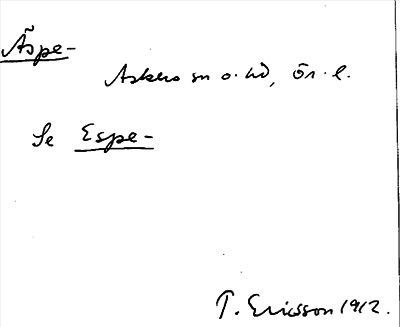 Äspe-
Askers sn o. hd, Ör. l.
Se Espe-
T. Ericsson 1912.